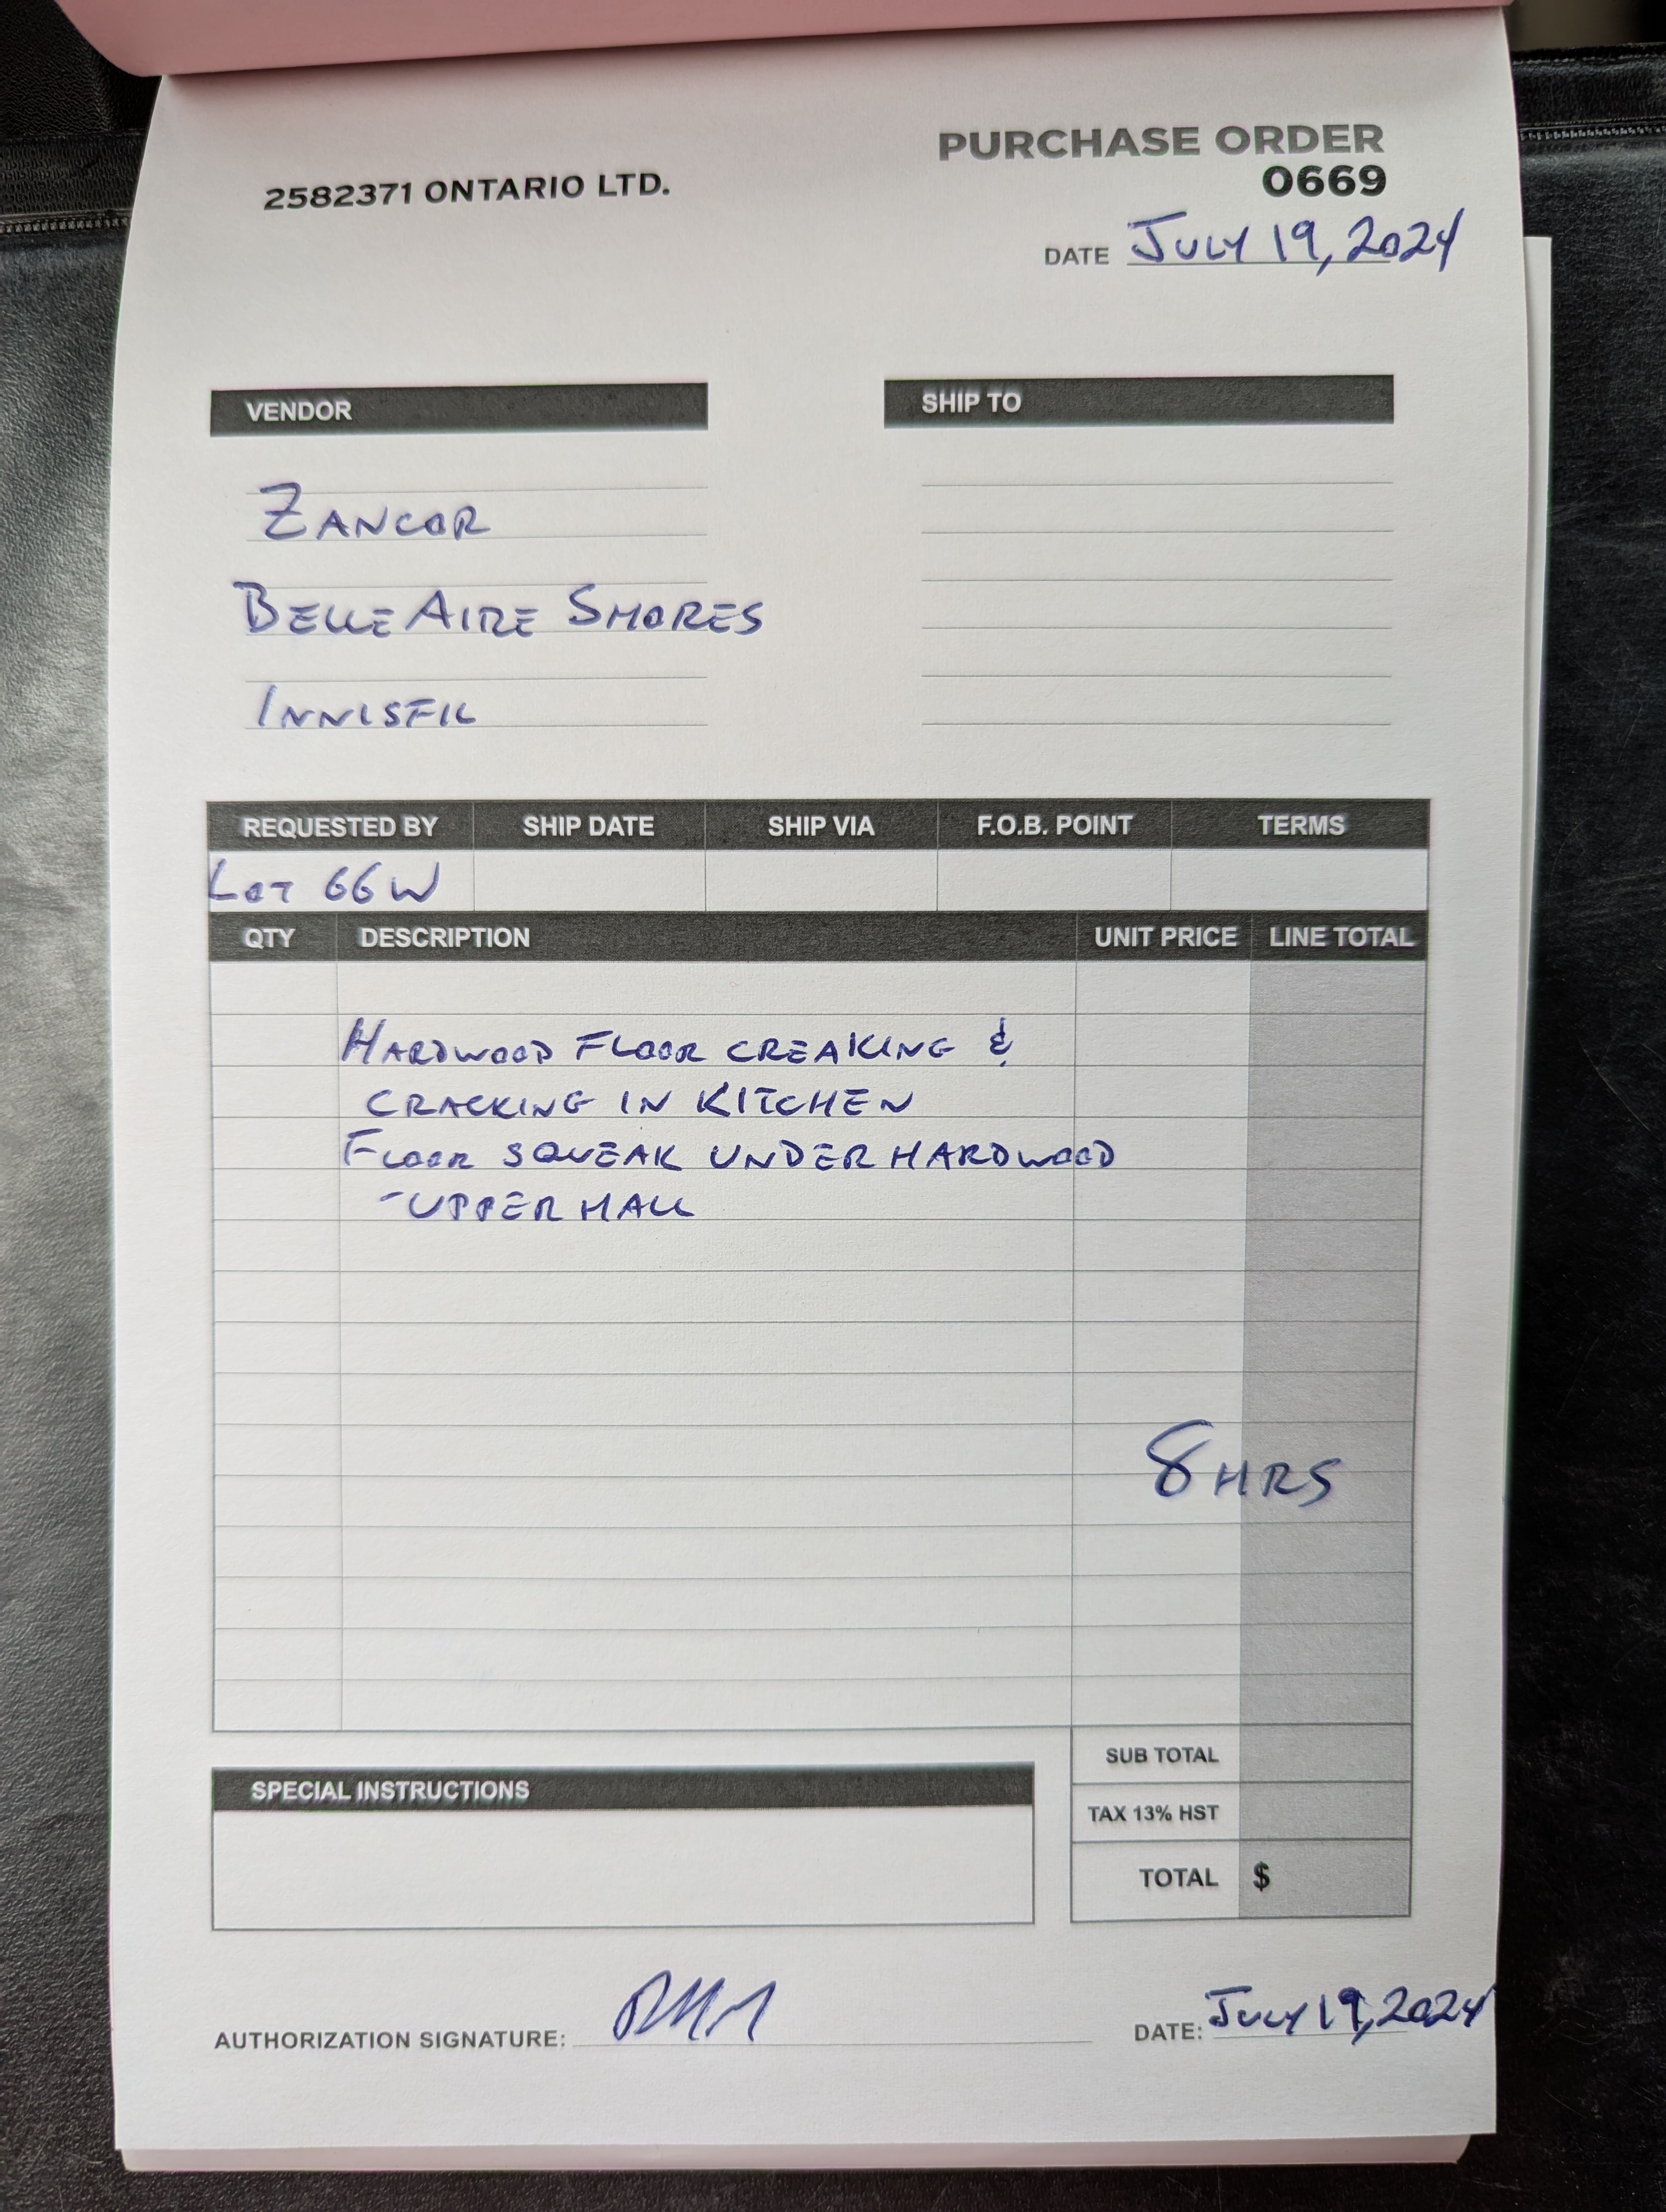 PURCHASE ORDER
2582371 ONTARIO LTD.
0669
DATE JULY 19, 2024
VENDOR
SHIP TO
ZANCOR
BELLE AIRE SHORES
INNISFIL
REQUESTED BY SHIP DATE SHIP VIA F.O.B. POINT TERMS
LOT 66W
QTY DESCRIPTION UNIT PRICE LINE TOTAL
HARDWOOD FLOOR CREAKING &
CRACKING IN KITCHEN
FLOOR SQUEAK UNDER HARDWOOD
-UPPER HALL
8 HRS
SUB TOTAL
SPECIAL INSTRUCTIONS
TAX 13% HST
TOTAL $
AUTHORIZATION SIGNATURE: DATE: JULY 19, 2024